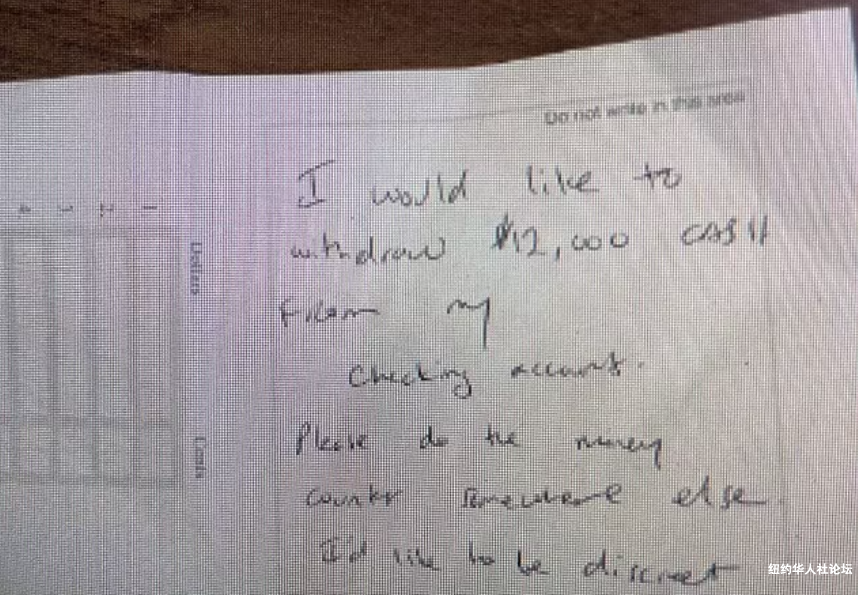 Do not write in this area
I would like to
withdraw $12,000 CASH
From my
checking account.
Please do the money
counter somewhere else
I'd like to be discreet
Dollars
Cents
纽约华人社论坛